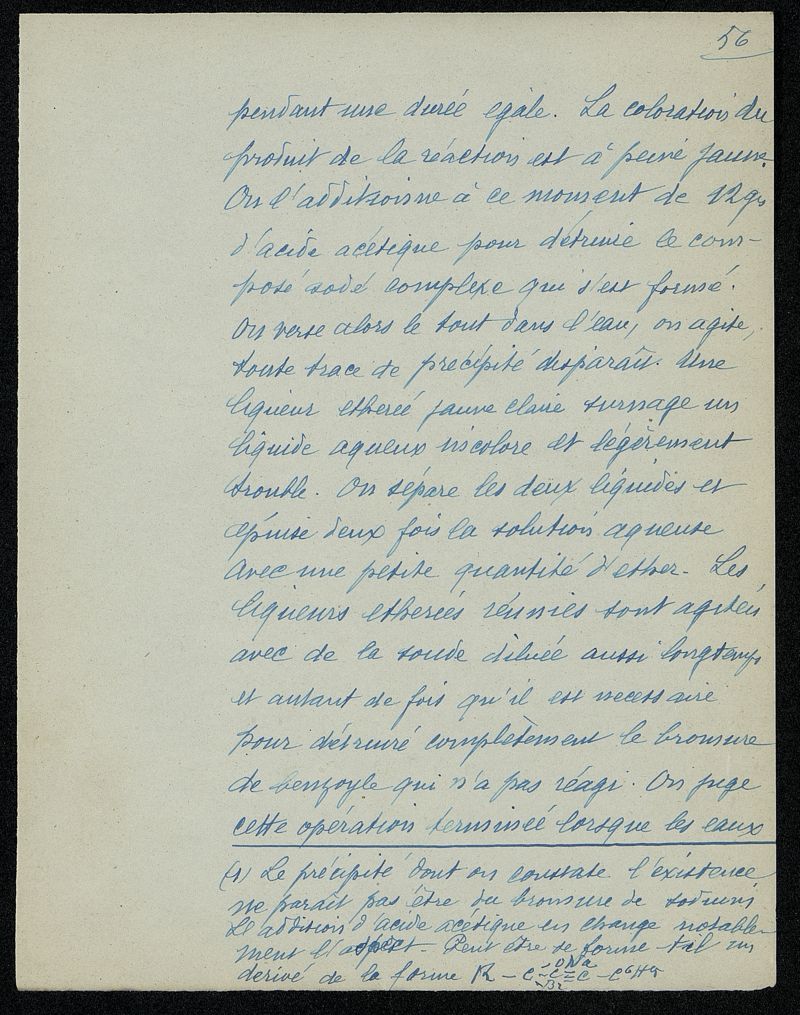 56
pendant une durée egale. La coloration du
produit de la réaction est à peine jaune.
On l'additionne à ce moment de 12 grs
d'acide acétique pour détruire le com-
posé sodé complexe qui s'est formé.
On verse alors le tout dans l'eau, on agite,
toute trace de précipité disparaît. Une
liqueur etherée jaune claire surnage un
liquide aqueux incolore et légèrement
trouble. On sépare les deux liquides et
épuise deux fois la solution aqueuse
avec une petite quantité d'ether. Les
liqueurs etherées réunies sont agitées
avec de la soude diluée aussi longtemps
et autant de fois qu'il est necessaire
pour détruire complètement le bromure
de benzoyle qui n'a pas réagi. On juge
cette opération terminée lorsque les eaux
(1) Le précipité dont on constate l'existence
ne paraît pas être du bromure de sodium
Le addition d'acide acétique en change notable-
ment l'aspect. Peut être se forme t-il un
derivé de la forme R - C = C = C - C6H5
ONa
Br